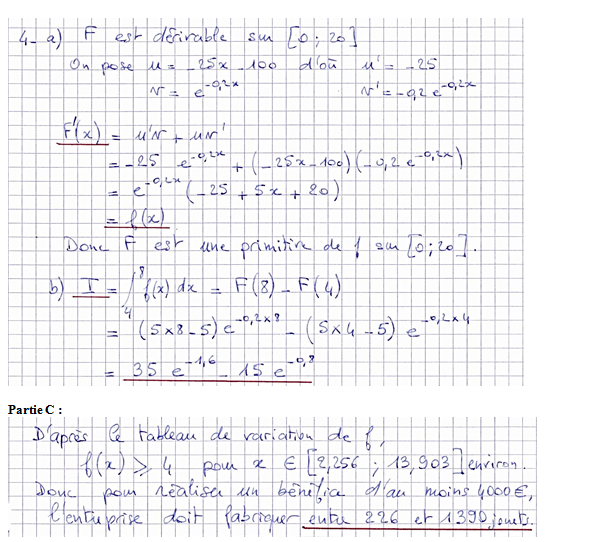 4- a) F est dérivable sur [0 ; 20]
On pose u = -25x - 100 d'où u' = -25
v = e^-0,2x v' = -0,2 e^-0,2x
F'(x) = u'v + uv'
= -25 e^-0,2x + (-25x-100)(-0,2 e^-0,2x)
= e^-0,2x (-25 + 5x + 20)
= f(x)
Donc F est une primitive de f sur [0 ; 20].
b) I = ∫_4^8 f(x) dx = F(8) - F(4)
= (5×8-5) e^-0,2×8 - (5×4-5) e^-0,2×4
= 35 e^-1,6 - 15 e^-0,8
Partie C :
D'après le tableau de variation de f,
f(x) ⩾ 4 pour x ∈ [2,256 ; 13,903] environ.
Donc pour réaliser un bénéfice d'au moins 4000 €,
l'entreprise doit fabriquer entre 226 et 1390 jouets.